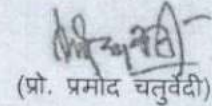 (प्रो. प्रमोद चतुर्वेदी)